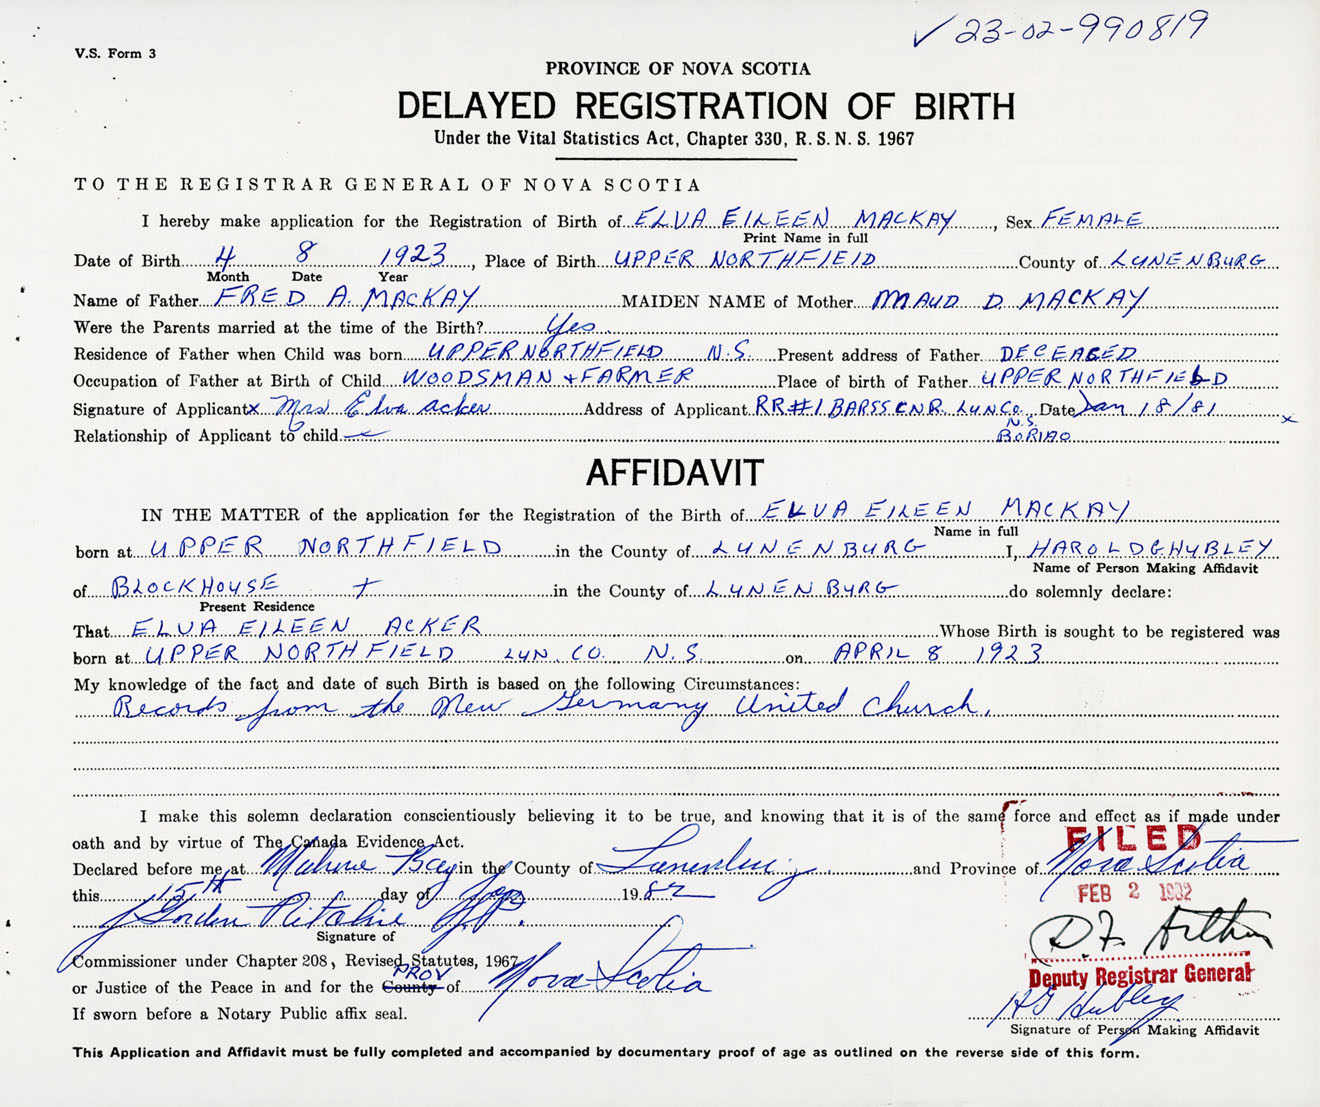 ✓ 23-02-990819
V.S. Form 3
PROVINCE OF NOVA SCOTIA
DELAYED REGISTRATION OF BIRTH
Under the Vital Statistics Act, Chapter 330, R. S. N. S. 1967
TO THE REGISTRAR GENERAL OF NOVA SCOTIA
I hereby make application for the Registration of Birth of ELVA EILEEN MACKAY, Sex FEMALE
Print Name in full
Date of Birth 4 8 1923, Place of Birth UPPER NORTHFIELD County of LUNENBURG
Month Date Year
Name of Father FRED A. MACKAY MAIDEN NAME of Mother MAUD D. MACKAY
Were the Parents married at the time of the Birth? Yes.
Residence of Father when Child was born UPPER NORTHFIELD N.S. Present address of Father DECEASED
Occupation of Father at Birth of Child WOODSMAN + FARMER Place of birth of Father UPPER NORTHFIELD
Signature of Applicant x Mrs Elva Acker Address of Applicant RR#1 BARSS CNR. LUN CO. Date Jan 18/81 x
N.S.
Relationship of Applicant to child
AFFIDAVIT
IN THE MATTER of the application for the Registration of the Birth of ELVA EILEEN MACKAY
Name in full
born at UPPER NORTHFIELD in the County of LUNENBURG I, HAROLD G. HUBLEY
Name of Person Making Affidavit
of BLOCKHOUSE in the County of LUNENBURG do solemnly declare:
Present Residence
That ELVA EILEEN ACKER Whose Birth is sought to be registered was
born at UPPER NORTHFIELD LUN. CO. N.S. on APRIL 8 1923
My knowledge of the fact and date of such Birth is based on the following Circumstances:
Records from the New Germany United Church.
I make this solemn declaration conscientiously believing it to be true, and knowing that it is of the same force and effect as if made under
oath and by virtue of The Canada Evidence Act.
FILED
Declared before me at Mahone Bay in the County of Lunenburg and Province of Nova Scotia
this 15th day of Jan 1982
FEB 2 1982
J Gordon Ritchie J.P.
Signature of
D.F. Arthur
Commissioner under Chapter 208, Revised Statutes, 1967
Deputy Registrar General
PROV
or Justice of the Peace in and for the County of Nova Scotia
HG Hubley
If sworn before a Notary Public affix seal.
Signature of Person Making Affidavit
This Application and Affidavit must be fully completed and accompanied by documentary proof of age as outlined on the reverse side of this form.